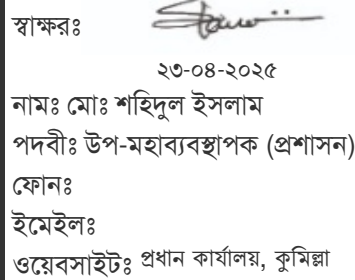 স্বাক্ষরঃ
২৩-০৪-২০২৫
নামঃ মোঃ শহিদুল ইসলাম
পদবীঃ উপ-মহাব্যবস্থাপক (প্রশাসন)
ফোনঃ
ইমেইলঃ
ওয়েবসাইটঃ প্রধান কার্যালয়, কুমিল্লা